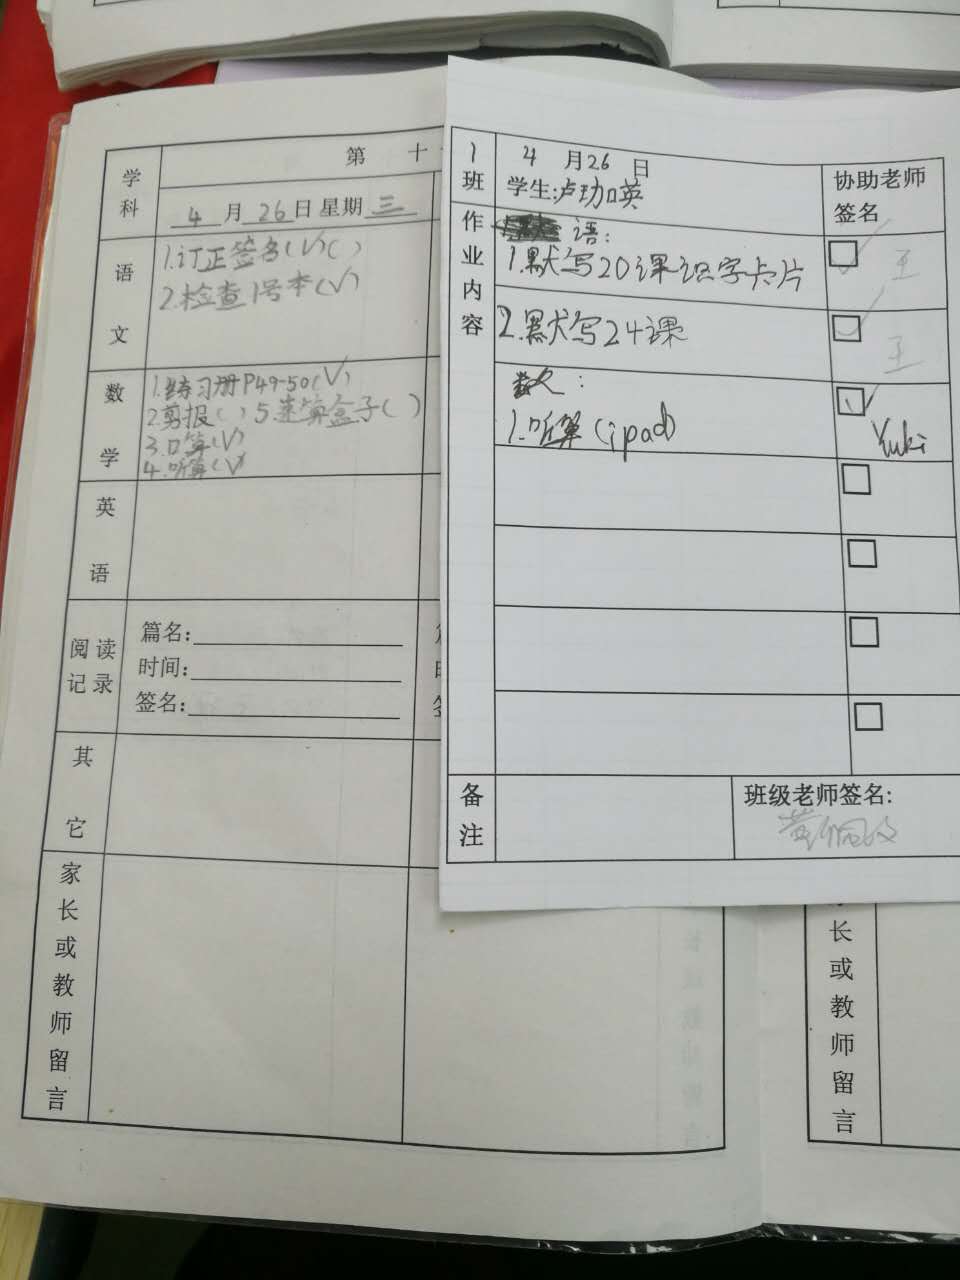 学科
第 十
4 月 26 日 星期 三
语文
1.订正签名(√)( )
2.检查1号本(√)
数学
1.练习册P49-50(√)
2.剪报( ) 5.速算盒子( )
3.口算(√)
4.听算(√)
英语
阅读记录
篇名:
时间:
签名:
其它
家长或教师留言
1班
4 月 26 日
学生:卢玏英
协助老师
签名
作业内容
语:
1.默写20课识字卡片
王
2.默写24课
王
数:
1.听算(ipad)
Yuki
备注
班级老师签名:
长或教师留言